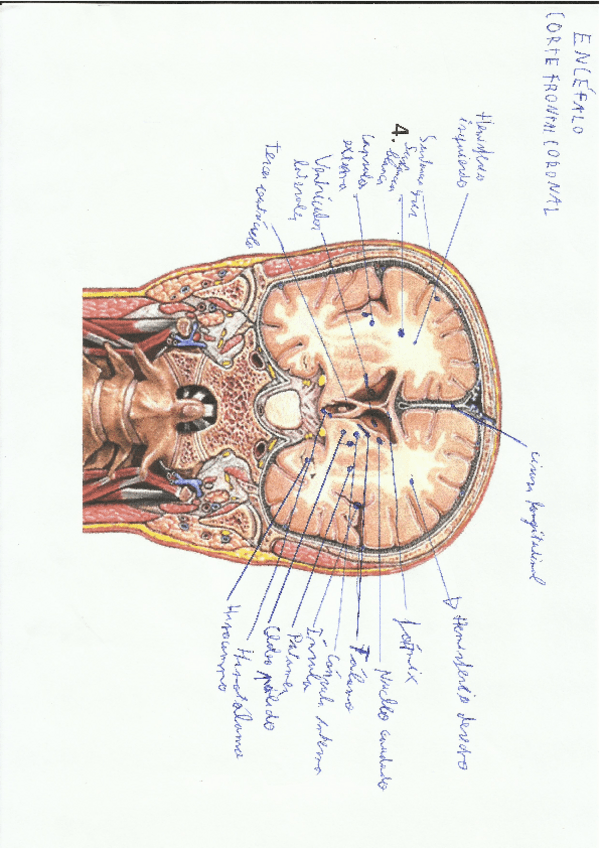 ENCÉFALO
CORTE FRONTAL CORONAL
Hemisferio
izquierdo
Sustancia gris
4.
Sustancia
blanca
Capsula
externa
Ventrículos
laterales
Tercer ventrículo
cisura longitudinal
Hemisferio derecho
Fórnix
Núcleo caudado
Tálamo
Cápsula interna
Ínsula
Putamen
Globo pálido
Hipotálamo
Hipocampo